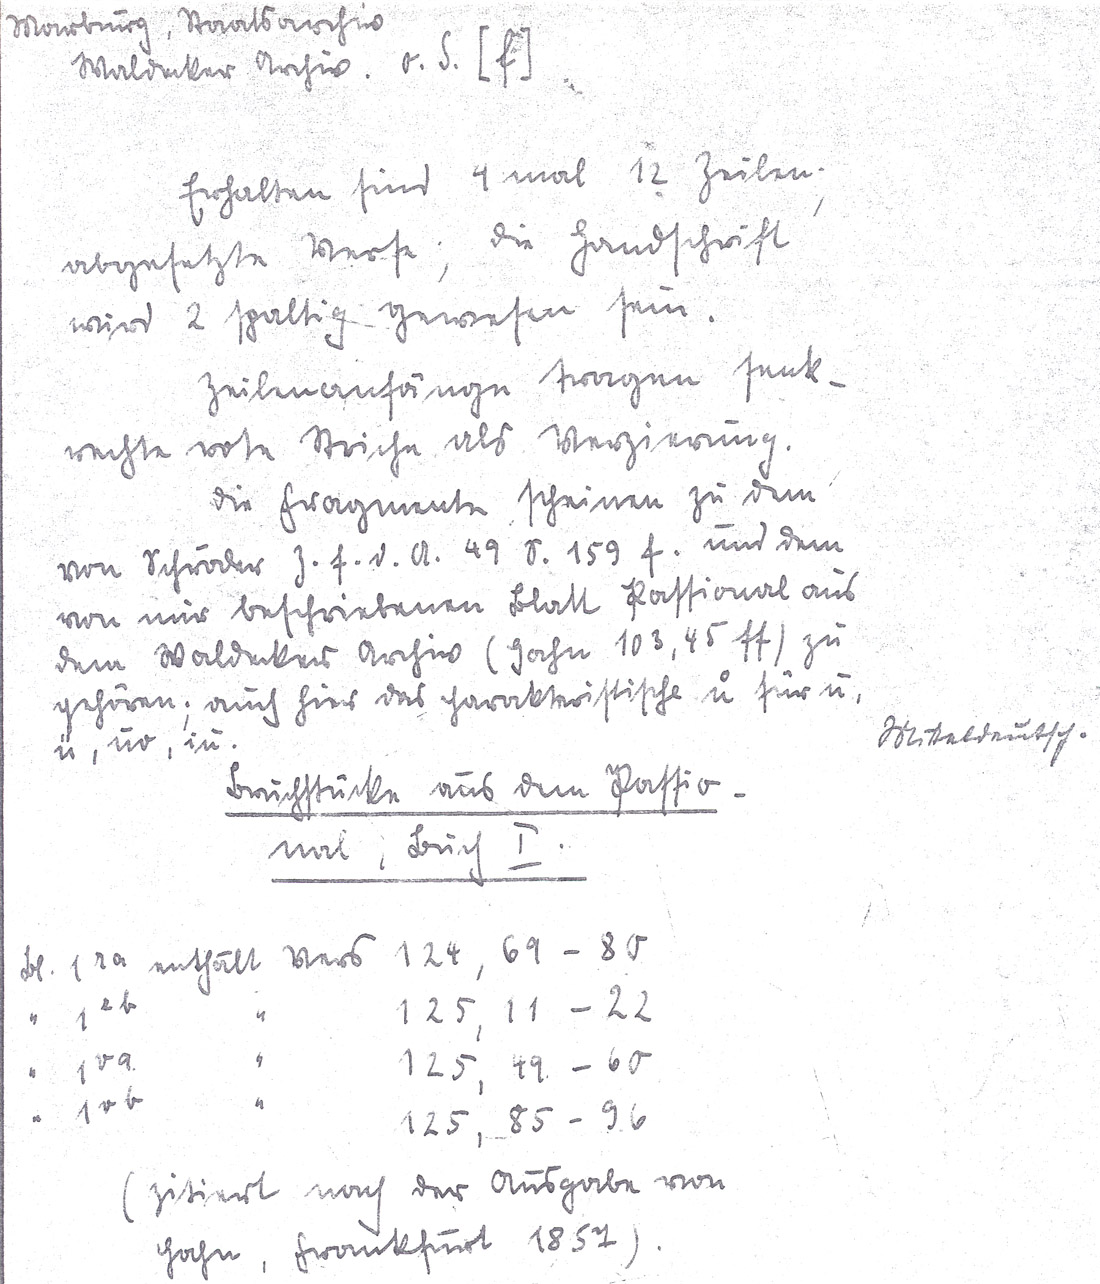 Marburg, Staatsarchiv
Waldecker Archiv. o. S. [f]
Erhalten sind 4 mal 12 Zeilen;
abgesetzte Verse; die Handschrift
wird 2 spaltig gewesen sein.
Zeilenanfänge tragen senk-
rechte rote Striche als Verzierung.
Die Fragmente scheinen zu dem
von Schröder Z. f. d. A. 49 S. 159 f. und dem
von mir beschriebenen Blatt Passional aus
dem Waldecker Archiv (Hahn 103,45 ff) zu
gehören; auch hier das charakteristische ů für u,
ü, uo, iu.
Mitteldeutsch.
Bruchstücke aus dem Passio-
nal, Buch I.
Bl. 1 ra enthält Vers 124, 69 - 80
" 1 rb " 125, 11 - 22
" 1 va " 125, 49 - 60
" 1 vb " 125, 85 - 96
(zitiert nach der Ausgabe von
Hahn, Frankfurt 1857).